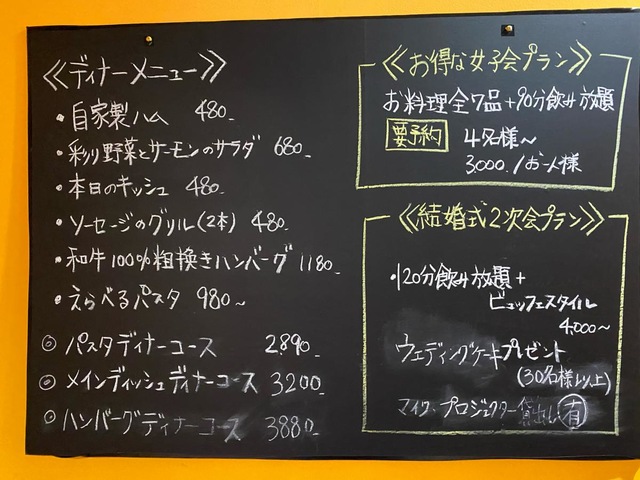 ≪ディナーメニュー≫
・自家製ハム 480-
・彩り野菜とサーモンのサラダ 680-
・本日のキッシュ 480-
・ソーセージのグリル(2本) 480-
・和牛100%粗挽きハンバーグ 1180-
・えらべるパスタ 980~
◎ パスタディナーコース 2890-
◎ メインディッシュディナーコース 3200-
◎ ハンバーグディナーコース 3880-
≪お得な女子会プラン≫
お料理全7品+90分飲み放題
要予約 4名様~
3000./お一人様
≪結婚式2次会プラン≫
・120分飲み放題+
ビュッフェスタイル
4,000~
ウェディングケーキプレゼント
(30名様以上)
マイク・プロジェクター貸出し有